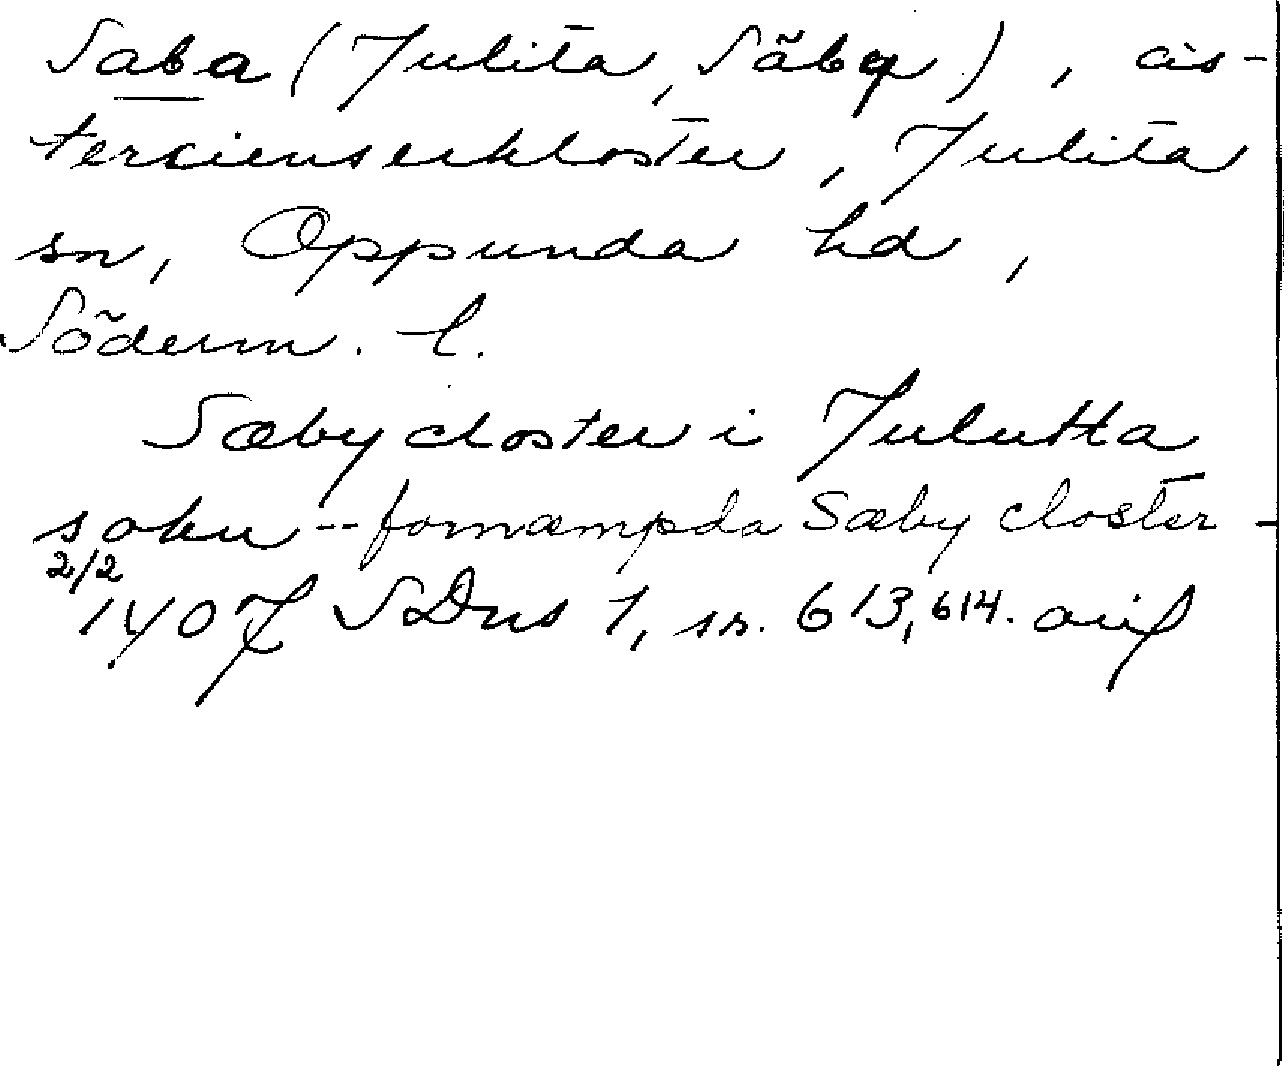 Saba (Julita, Säby), cis-
tercienserkloster, Julita
sn, Oppunda hd,
Söderm. l.
Sæby closter i Julutta
sokn -- fornæmpda Sæby closter -
2/2
1407 SDns 1, sn. 613, 614. avsl